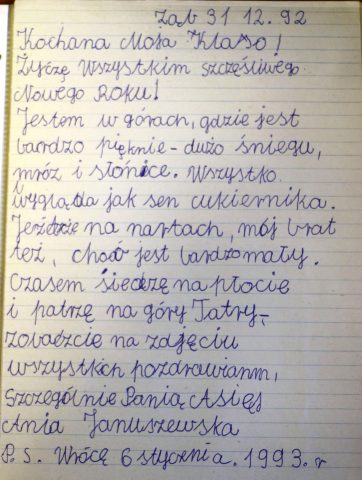 Zab 31 12. 92
Kochana Moja Klaso!
Życzę Wszystkim szczęśliwego
Nowego Roku!
Jestem w górach, gdzie jest
bardzo pięknie - dużo śniegu,
mróz i słońce. Wszystko
wygląda jak sen cukiernika.
Jeżdżę na nartach, mój brat
też, choć jest bardzo mały.
Czasem siedzę na płocie
i patrzę na góry Tatry,-
zobaczcie na zdjęciu
wszystkich pozdrawiamm,
Szczególnie Panią Asię;
Ania Januszewska
P. S. Wrócę 6 stycznia. 1993. r